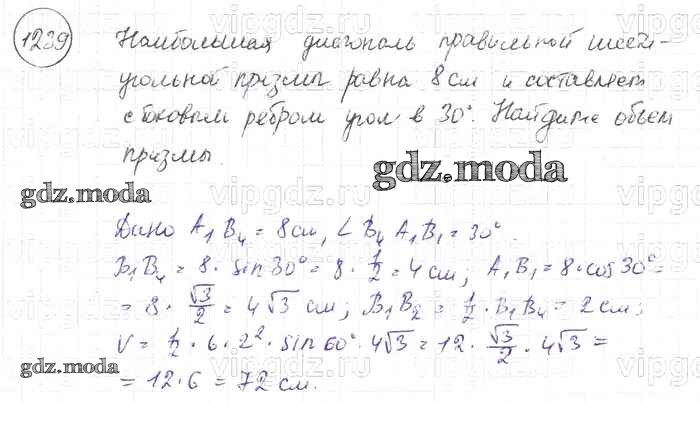 1239 Наибольшая диагональ правильной шести-
угольной призмы равна 8 см и составляет
с боковым ребром угол в 30°. Найдите объем
призмы.
gdz.moda
gdz.moda
Дано A₁B₄ = 8 см, ∠ B₄ A₁B₁ = 30°.
B₁B₄ = 8 · sin 30° = 8 · 1/2 = 4 см; A₁B₁ = 8 · cos 30° =
= 8 · √3/2 = 4√3 см; B₁B₂ = 1/2 · B₁B₄ = 2 см;
V = 1/2 · 6 · 2² · sin 60° · 4√3 = 12 · √3/2 · 4√3 =
gdz.moda
= 12 · 6 = 72 см.
vipgdz.ru